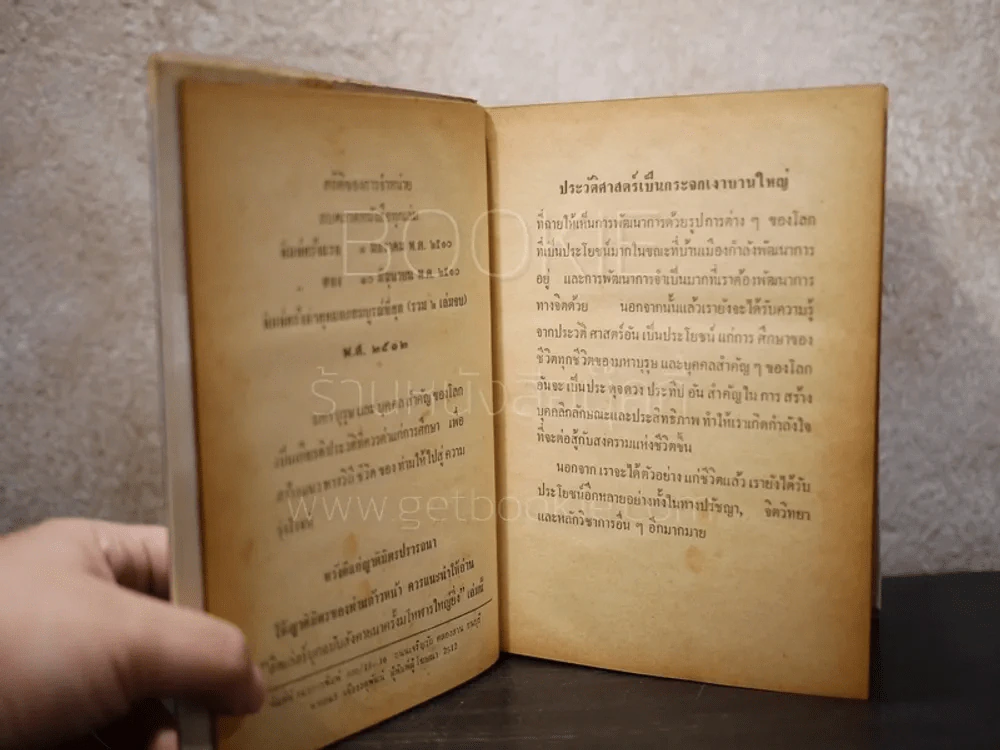 พิมพ์ครั้งแรก ๑ มกราคม พ.ศ. ๒๕๑๐
สอง ๑๐ มิถุนายน พ.ศ. ๒๕๑๐
(รวม ๒ เล่มจบ)
พ.ศ. ๒๕๑๒
มหาบุรุษ และ บุคคล สำคัญ ของโลก
เป็นเกียรติประวัติที่ควรค่าแก่การศึกษา เพื่อ
ชีวิต ของ ท่านให้ไปสู่ ความ
รุ่งโรจน์
หวังดีแก่ญาติมิตรปรารถนา
ให้ญาติมิตรของท่านก้าวหน้า ควรแนะนำให้อ่าน
เล่มนี้
ประวัติศาสตร์เป็นกระจกเงาบานใหญ่
ที่ฉายให้เห็นการพัฒนาการด้วยรูปการต่าง ๆ ของโลก
ที่เป็นประโยชน์มากในขณะที่บ้านเมืองกำลังพัฒนาการ
อยู่ และการพัฒนาการจำเป็นมากที่เราต้องพัฒนาการ
ทางจิตด้วย นอกจากนั้นแล้วเรายังจะได้รับความรู้
จากประวัติ ศาสตร์อัน เป็นประโยชน์ แก่การ ศึกษาของ
ชีวิตทุกชีวิตของมหาบุรุษ และบุคคลสำคัญ ๆ ของโลก
อันจะ เป็นประ ดุจดวง ประทีป อัน สำคัญใน การ สร้าง
บุคคลิกลักษณะและประสิทธิภาพ ทำให้เราเกิดกำลังใจ
ที่จะต่อสู้กับสงครามแห่งชีวิตขึ้น
นอกจาก เราจะได้ตัวอย่าง แก่ชีวิตแล้ว เรายังได้รับ
ประโยชน์อีกหลายอย่างทั้งในทางปรัชญา, จิตวิทยา
และหลักวิชาการอื่น ๆ อีกมากมาย
ร้านหนังสือ
www.getbookie.com